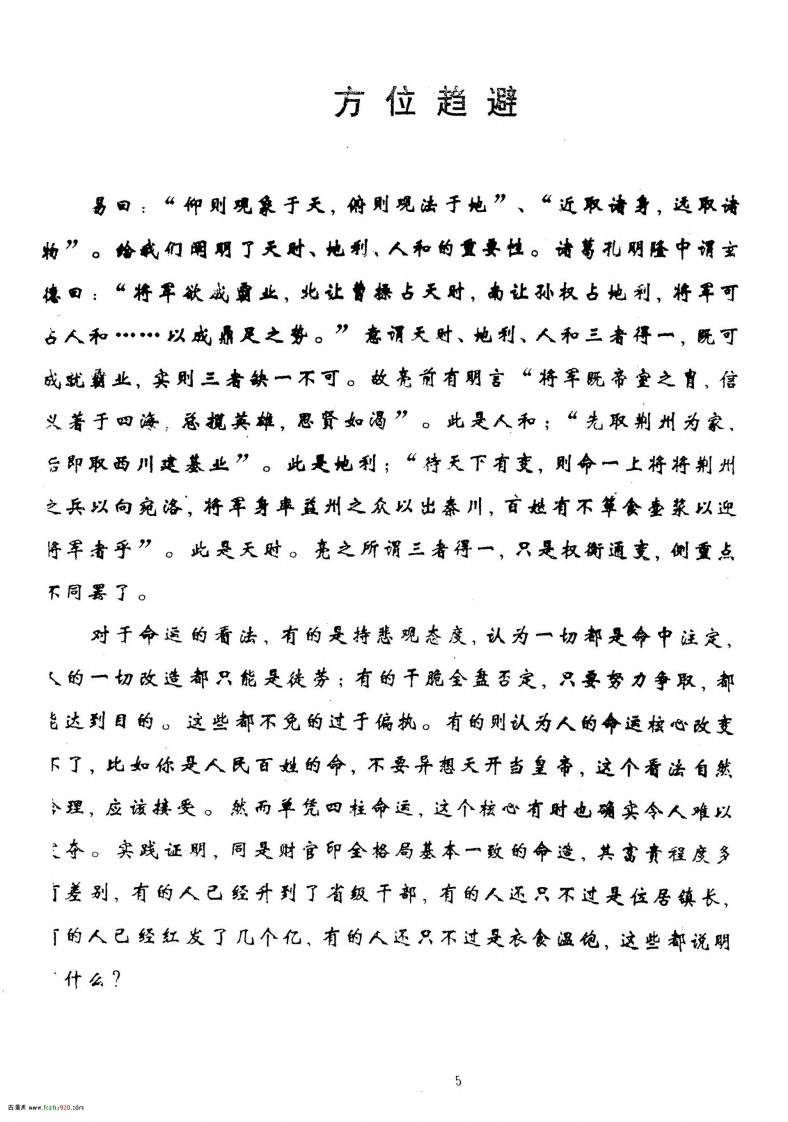 方位趋避
易曰：“仰则观象于天，俯则观法于地”、“近取诸身，远取诸
物”。给我们阐明了天时、地利、人和的重要性。诸葛孔明隆中谓玄
德曰：“将军欲成霸业，北让曹操占天时，南让孙权占地利，将军可
占人和……以成鼎足之势。”意谓天时、地利、人和三者得一，既可
成就霸业，实则三者缺一不可。故亮前有明言“将军既帝室之胄，信
义著于四海，总揽英雄，思贤如渴”。此是人和；“先取荆州为家，
后即取西川建基业”。此是地利；“待天下有变，则命一上将将荆州
之兵以向宛洛，将军身率益州之众以出秦川，百姓有不箪食壶浆以迎
将军者乎”。此是天时。亮之所谓三者得一，只是权衡通变，侧重点
不同罢了。
对于命运的看法，有的是持悲观态度，认为一切都是命中注定，
人的一切改造都只能是徒劳；有的干脆全盘否定，只要努力争取，都
能达到目的。这些都不免的过于偏执。有的则认为人的命运核心改变
不了，比如你是人民百姓的命，不要异想天开当皇帝，这个看法自然
合理，应该接受。然而单凭四柱命运，这个核心有时也确实令人难以
夺。实践证明，同是财官印全格局基本一致的命造，其富贵程度多
有差别，有的人已经升到了省级干部，有的人还只不过是位居镇长，
有的人已经红发了几个亿，有的人还只不过是衣食温饱，这些都说明
什么？
5
古籍库 www.fozhu920.com